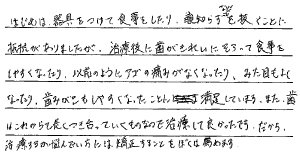 はじめは、器具をつけて食事をしたり、親知らずを抜くことに
抵抗がありましたが、治療後に歯がきれいにそろって食事を
しやすくなったり、以前のようにアゴの痛みがなくなったり、みた目もよく
なったり、歯みがきもしやすくなったことに満足しています。また、歯
はこれからも長くつき合っていくものなので治療して良かったです。だから、
治療するか悩んでいる方には矯正することをぼくは薦めます